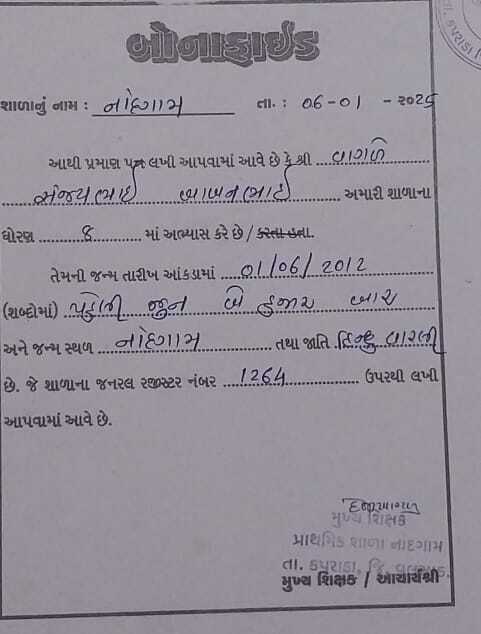 બોનાફાઈડ
શાળાનું નામ : નાંદગામ તા. : ૦6-૦1 - ૨૦૨6
આથી પ્રમાણ પત્ર લખી આપવામાં આવે છે કે શ્રી વાગળે
સંજયભાઈ બાબનભાઈ અમારી શાળાના
ધોરણ 8 માં અભ્યાસ કરે છે / કરતા હતા.
તેમની જન્મ તારીખ આંકડામાં 01/06/2012
(શબ્દોમાં) પહેલી જુન બે હજાર બાર
અને જન્મ સ્થળ નાંદગામ તથા જાતિ હિન્દુ વારલી
છે. જે શાળાના જનરલ રજીસ્ટર નંબર 1264 ઉપરથી લખી
આપવામાં આવે છે.
મુખ્ય શિક્ષક
પ્રાથમિક શાળા નાંદગામ
તા. કપરાડા, જિ. વલસાડ.
મુખ્ય શિક્ષક / આચાર્યશ્રી